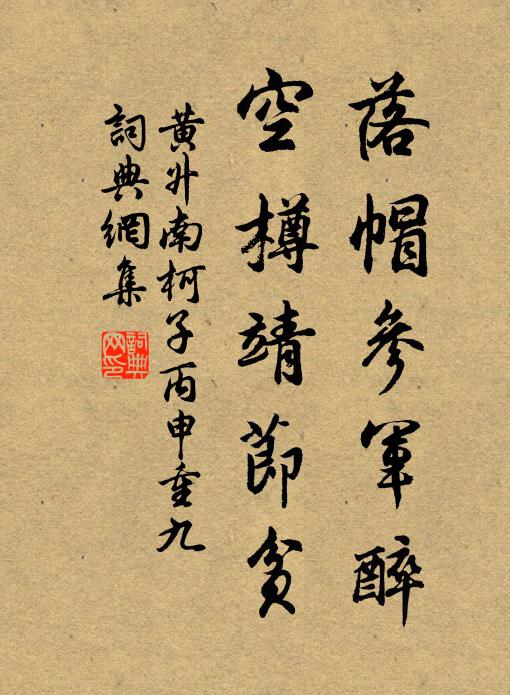 落帽參軍醉
空樽靖節貧
黄升南柯子丙申重九
詞典網集
詞典
网印